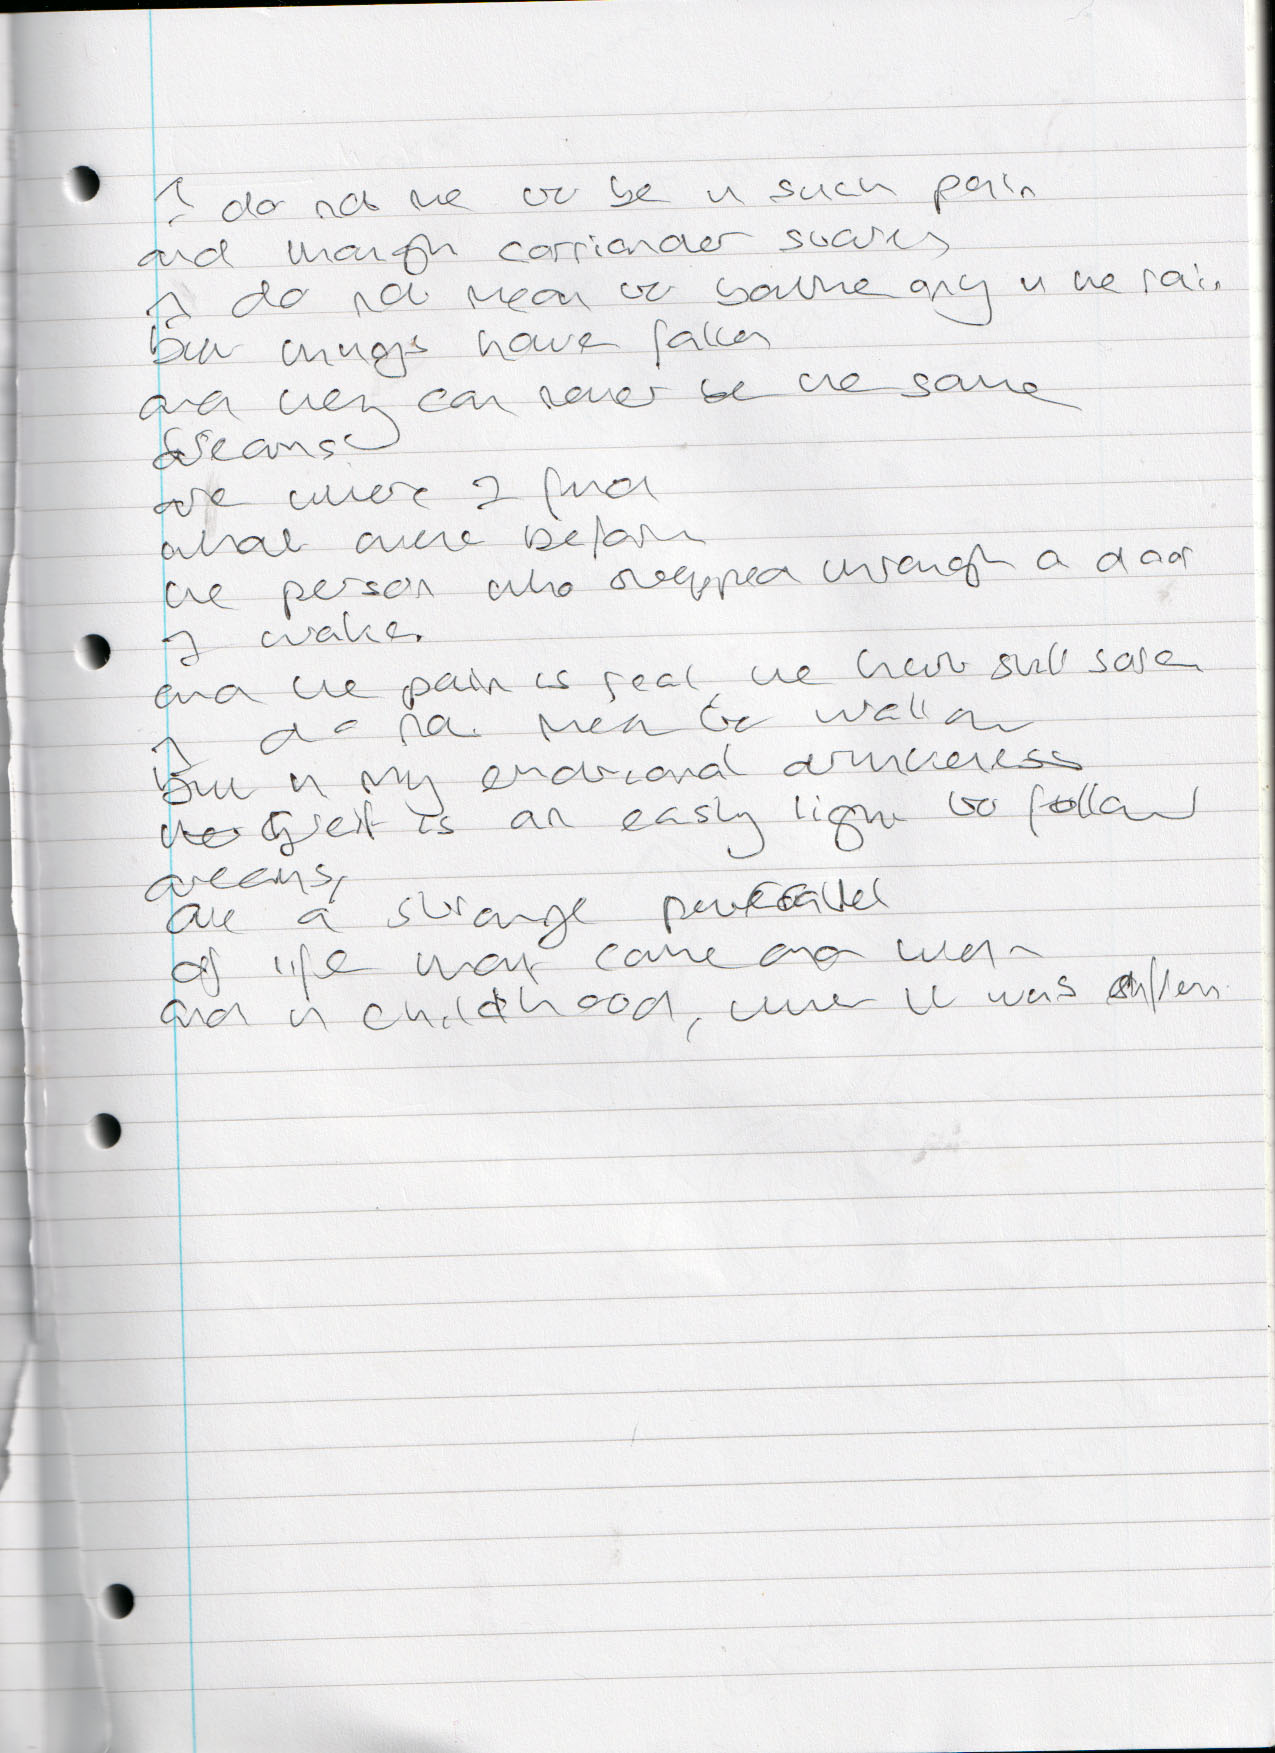 I do not me to be in such pain
and though corriander
I do not mean to bathe any in the rain
but things have fallen
and they can never be the same
dreams
are where I find
what were before
the person who stepped through a door
I wake.
and the pain is real, the heart still sore
I do not mean to wallow
but in my emotional drunkeness
grief is an easly light to follow
dreams,
are a strange parallel
of life that came and went
and in childhood, when it was often